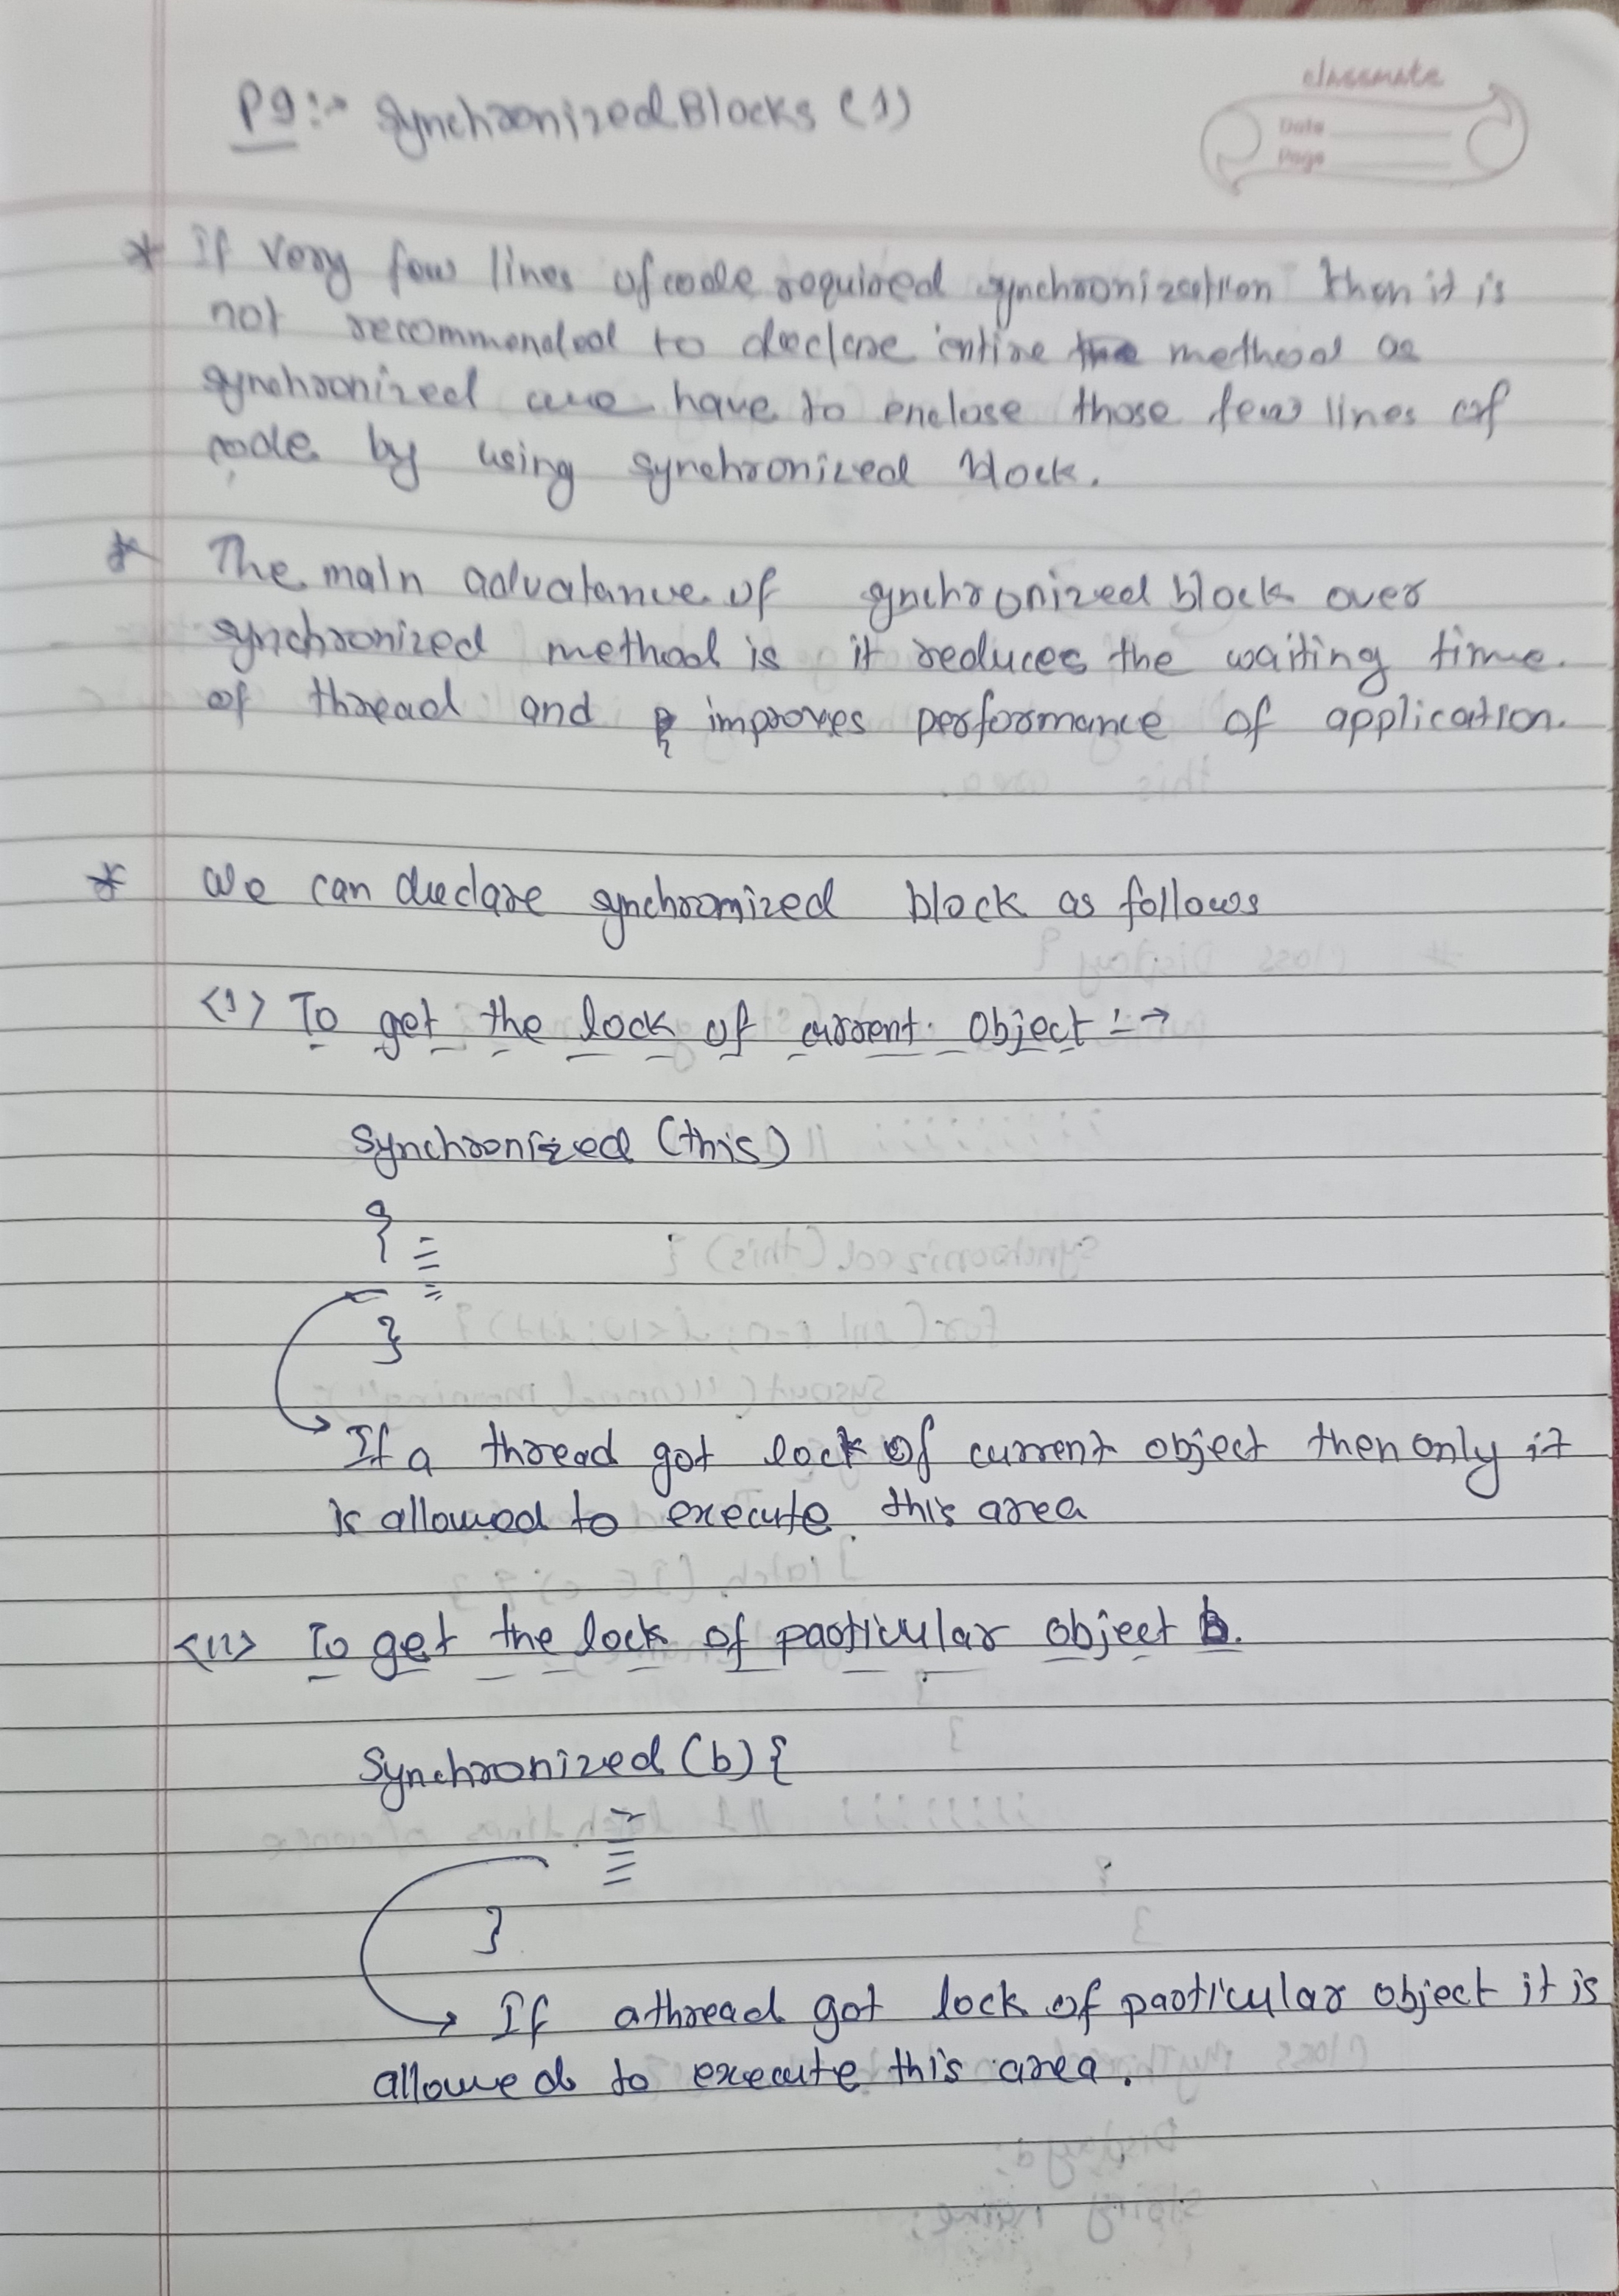 P9:→ SynchronizedBlocks (1)
classmate
Date
Page
* If Very few lines of code required synchronization then it is
not recommended to declare entire the method as
synchronized we have to enclose those few lines of
code by using synchronized block.
* The main advatance of synchronized block over
synchronized method is it reduces the waiting time
of thread and improves performance of application.
* We can declare synchromized block as follows
<1> To get the lock of current object :→
Synchronized (this)
{
}
If a thread got lock of current object then only it
is allowed to execute this area
<11> To get the lock of particular object b.
Synchronized (b) {
}
If a thread got lock of particular object it is
allowed to execute this area.